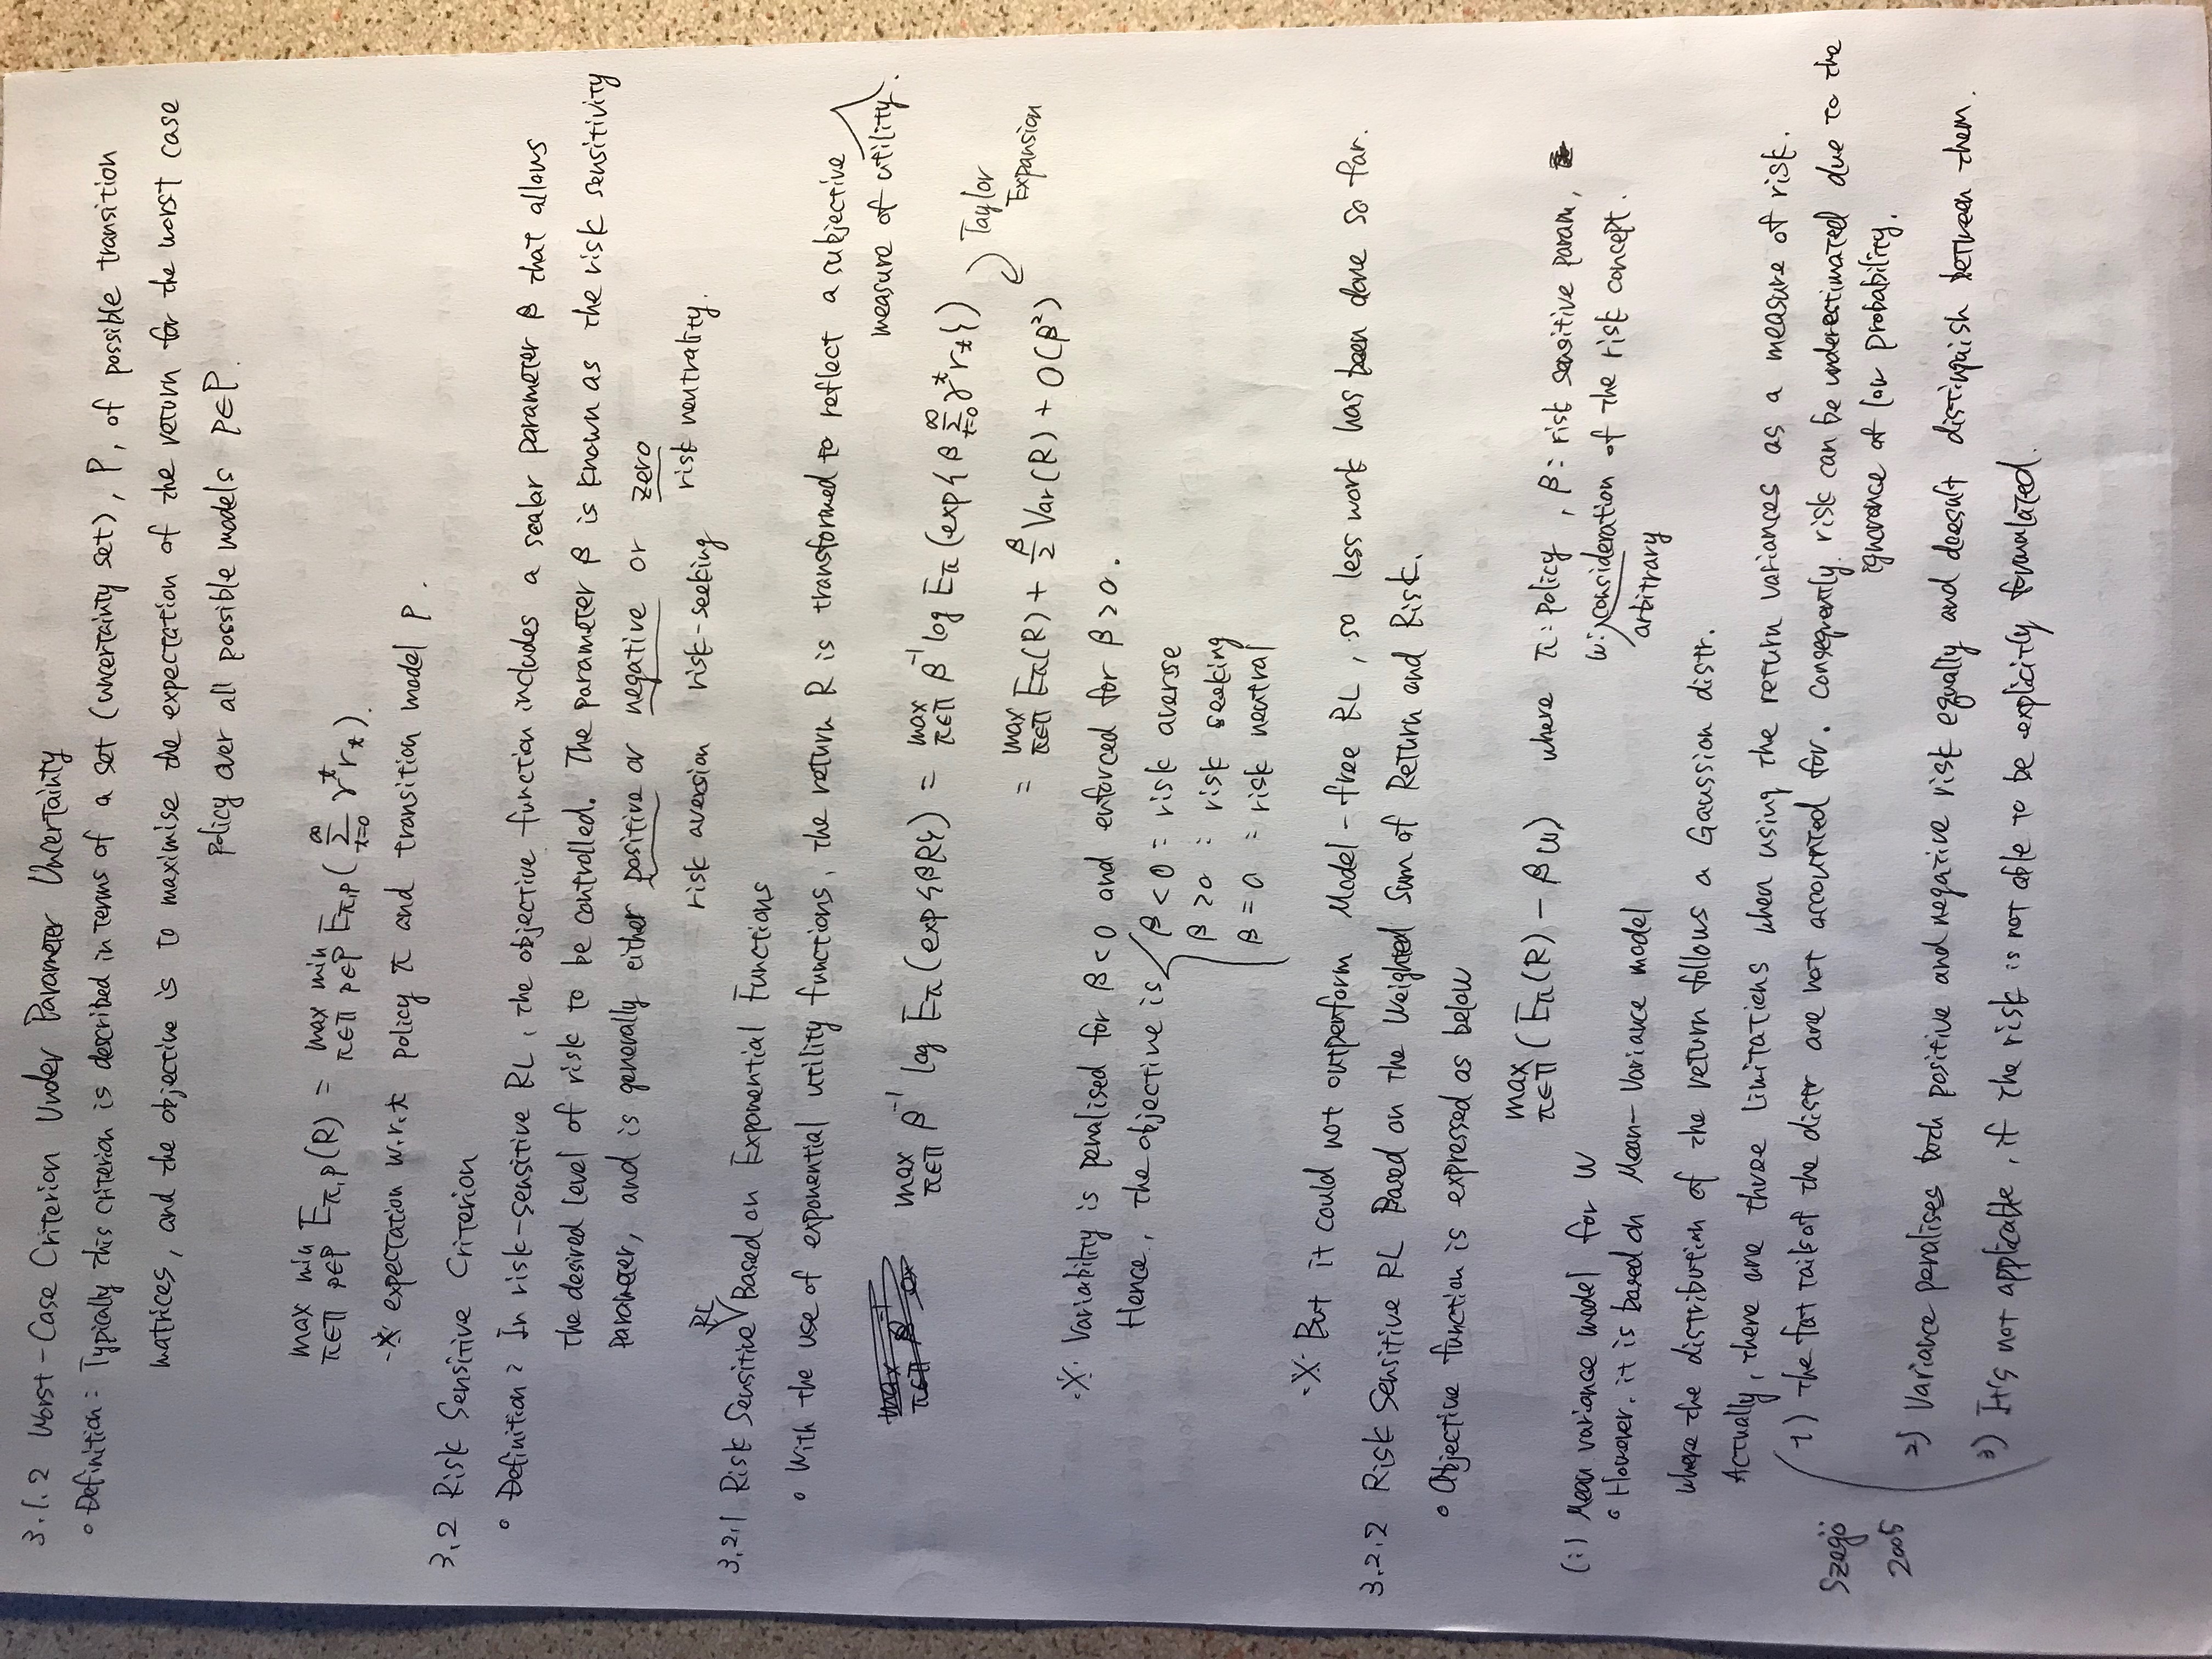 3.1.2 Worst-Case Criterion Under Parameter Uncertainty
∘ Definition: Typically this criterion is described in terms of a set (uncertainty set), P, of possible transition
matrices, and the objective is to maximise the expectation of the return for the worst case
policy over all possible models p∈P.
max π∈Π min p∈P E_{π,p}(R) = max π∈Π min p∈P E_{π,p}(∑_{t=0}^{∞} γ^t r_t).
※ expectation w.r.t policy π and transition model p.
3.2 Risk Sensitive Criterion
∘ Definition: In risk-sensitive RL, the objective function includes a scalar parameter β that allows
the desired level of risk to be controlled. The parameter β is known as the risk sensitivity
parameter, and is generally either positive or negative or zero
risk aversion risk-seeking risk neutrality.
3.2.1 Risk Sensitive RL Based on Exponential Functions
∘ With the use of exponential utility functions, the return R is transformed to reflect a subjective
measure of utility.
max π∈Π β^{-1} log E_π(exp{βR}) = max π∈Π β^{-1} log E_π(exp{β ∑_{t=0}^{∞} γ^t r_t})
Taylor Expansion
= max π∈Π E_π(R) + β/2 Var(R) + O(β²)
※ Variability is penalised for β<0 and enforced for β>0.
Hence, the objective is { β<0 : risk averse
β>0 : risk seeking
β=0 : risk neutral
※ But it could not outperform Model-free RL, so less work has been done so far.
3.2.2 Risk Sensitive RL Based on the Weighted Sum of Return and Risk.
∘ Objective function is expressed as below
max π∈Π (E_π(R) − βω) where π: policy, β: risk sensitive param,
ω: arbitrary consideration of the risk concept.
(i) Mean variance model for W
∘ However, it is based on Mean-Variance model
where the distribution of the return follows a Gaussion distr.
Actually, there are three limitations when using the return variances as a measure of risk.
Szegö 2005
1) the fat tails of the distr are not accounted for. Consequently, risk can be underestimated due to the
ignorance of low probability.
2) Variance penalises both positive and negative risk equally and doesn't distinguish between them.
3) It's not applicable, if the risk is not able to be explicitly formulated.